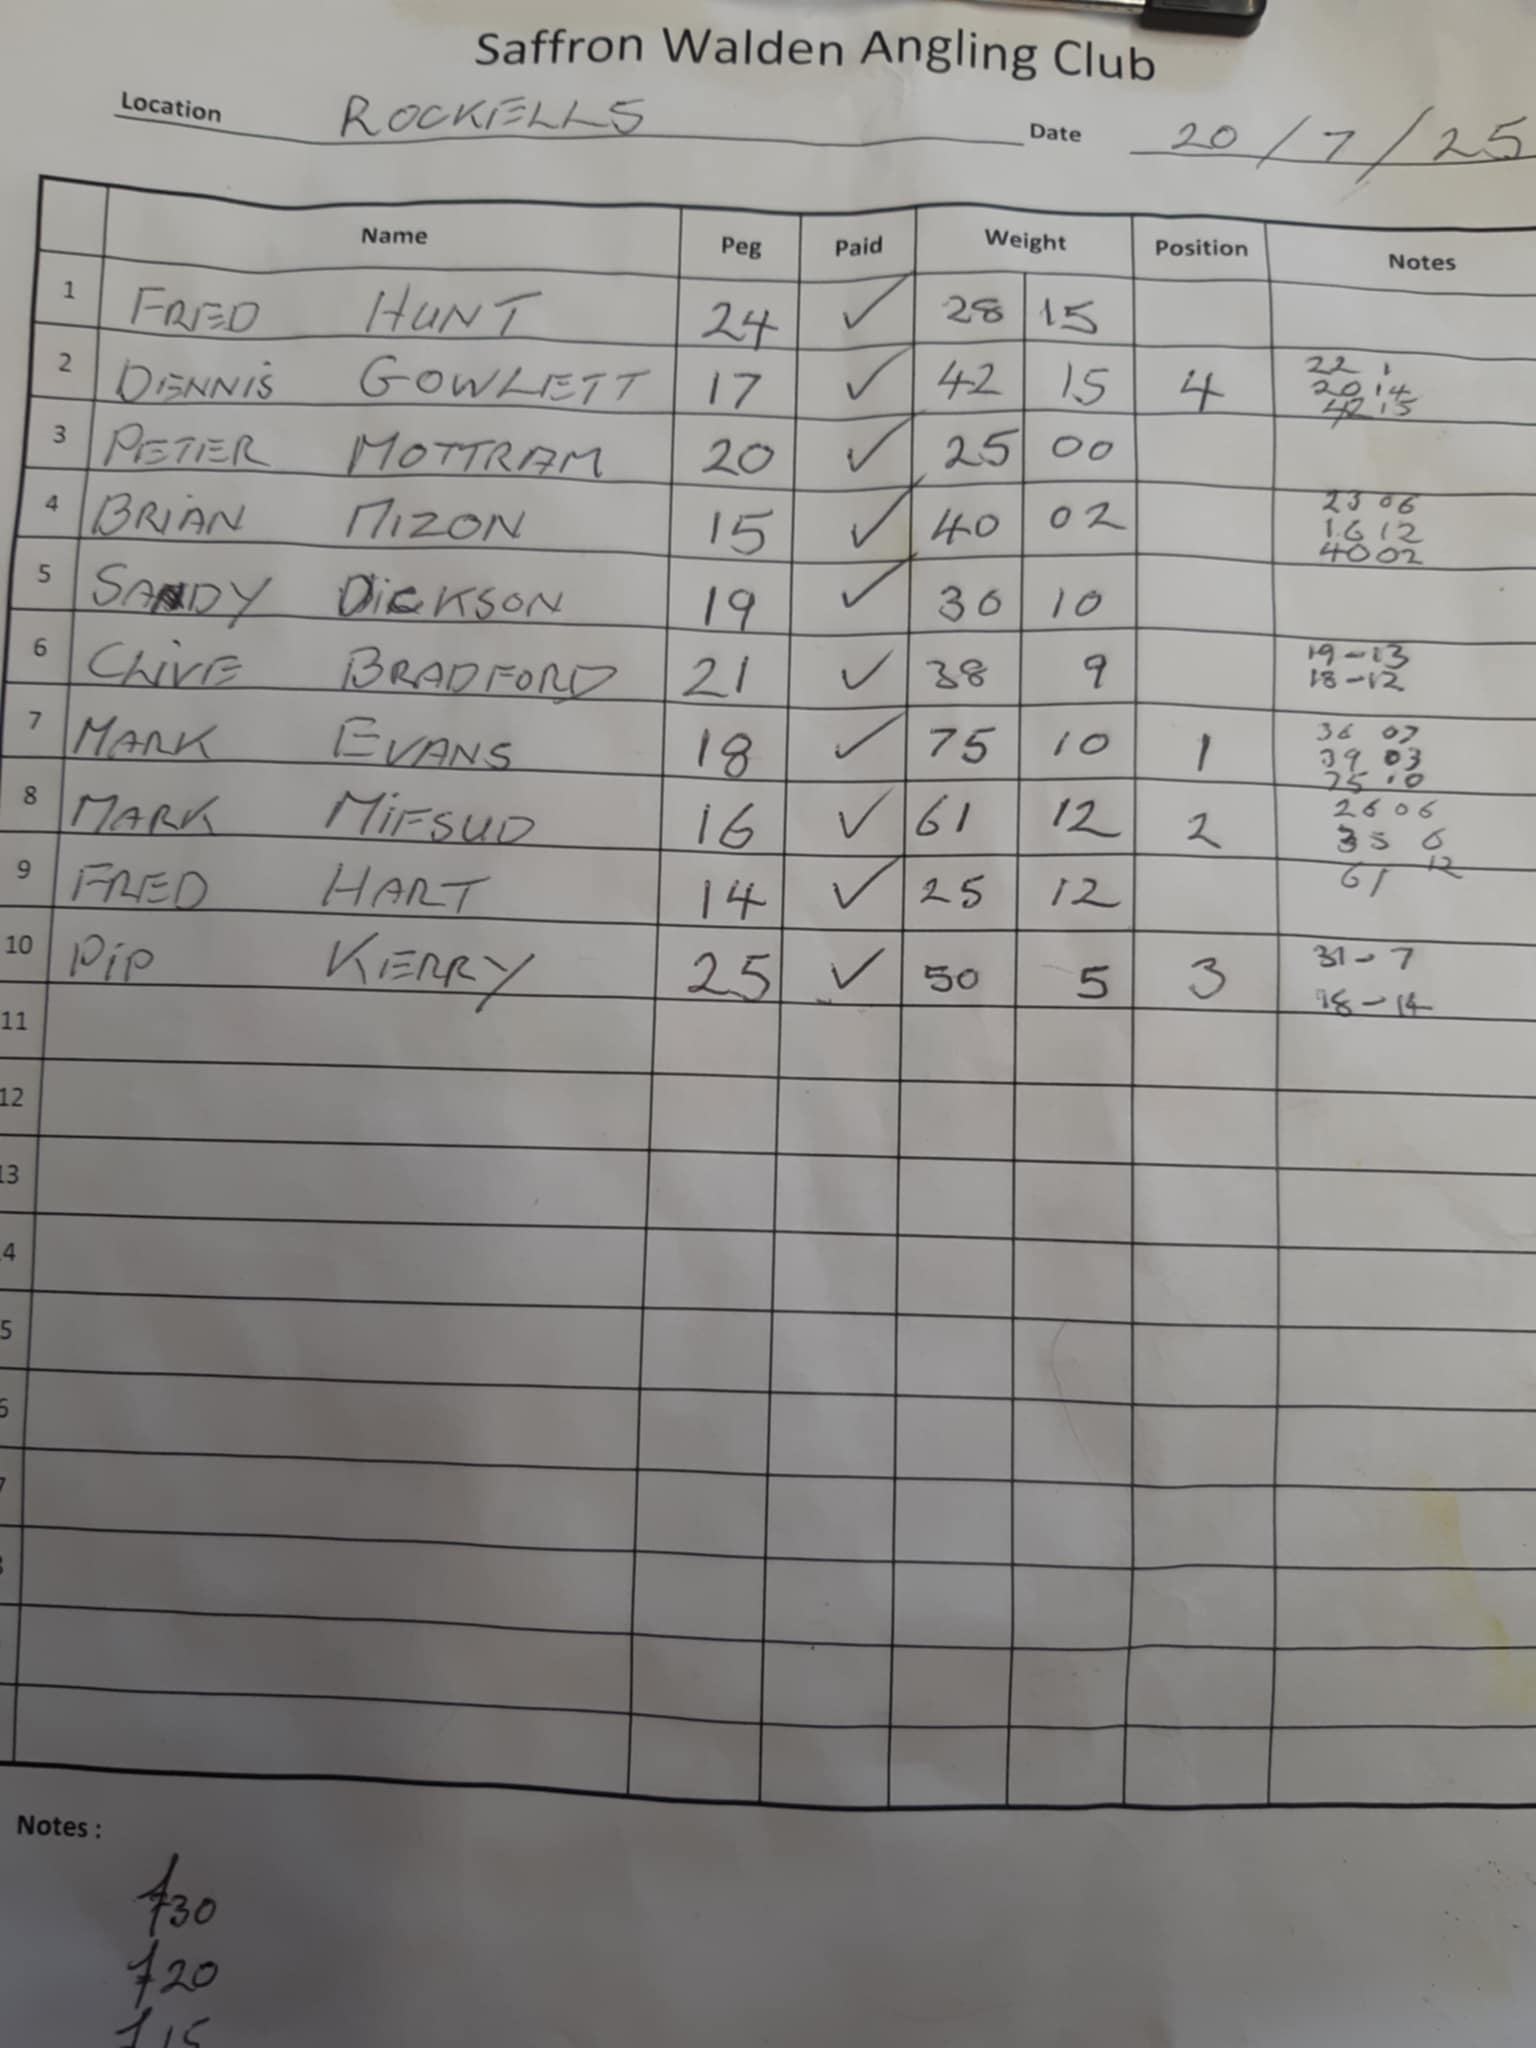 Saffron Walden Angling Club
Location ROCKELLS Date 20/7/25
Name Peg Paid Weight Position Notes
1 FRED HUNT 24 ✓ 28 15
2 DENNiS GOWLETT 17 ✓ 42 15 4 22 1
20 14
42 15
3 PETER MOTTRAM 20 ✓ 25 00
4 BRiAN MIZON 15 ✓ 40 02 23 06
16 12
40 02
5 SANDY DiCKSON 19 ✓ 30 10
6 CLiVE BRADFORD 21 ✓ 38 9 19-13
18-12
7 MARK EVANS 18 ✓ 75 10 1 36 07
39 03
75 10
8 MARK MiFSUD 16 ✓ 61 12 2 26 06
35 6
61 12
9 FRED HART 14 ✓ 25 12
10 PiP KERRY 25 ✓ 50 5 3 31-7
18-14
11
12
13
4
5
6
7
Notes :
£30
£20
£15